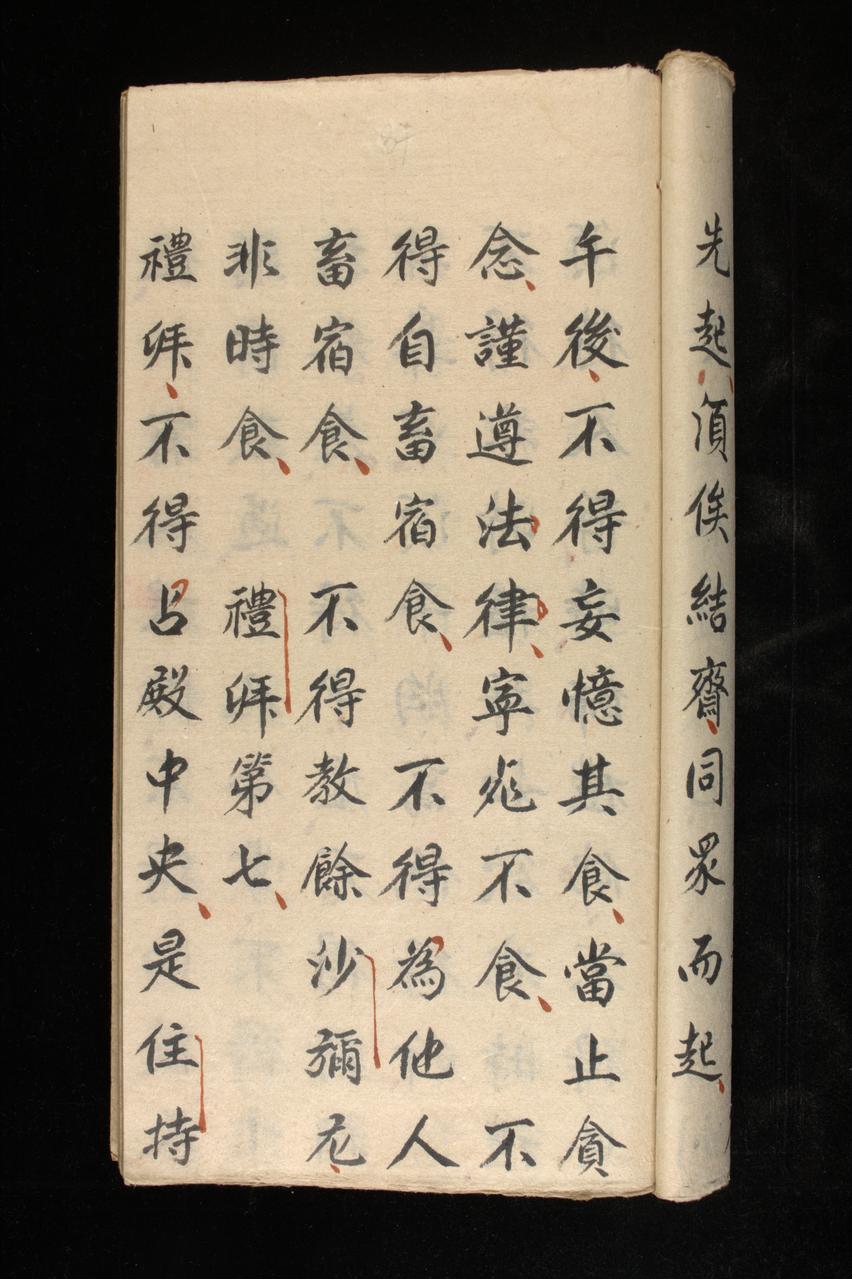 先起須俟結齋同眾而起
午後不得妄憶其食當止貪
念謹遵法律寧死不食 不
得自畜宿食 不得為他人
畜宿食 不得教餘沙彌尼
非時食 禮拜第七
禮拜不得占殿中央是住持